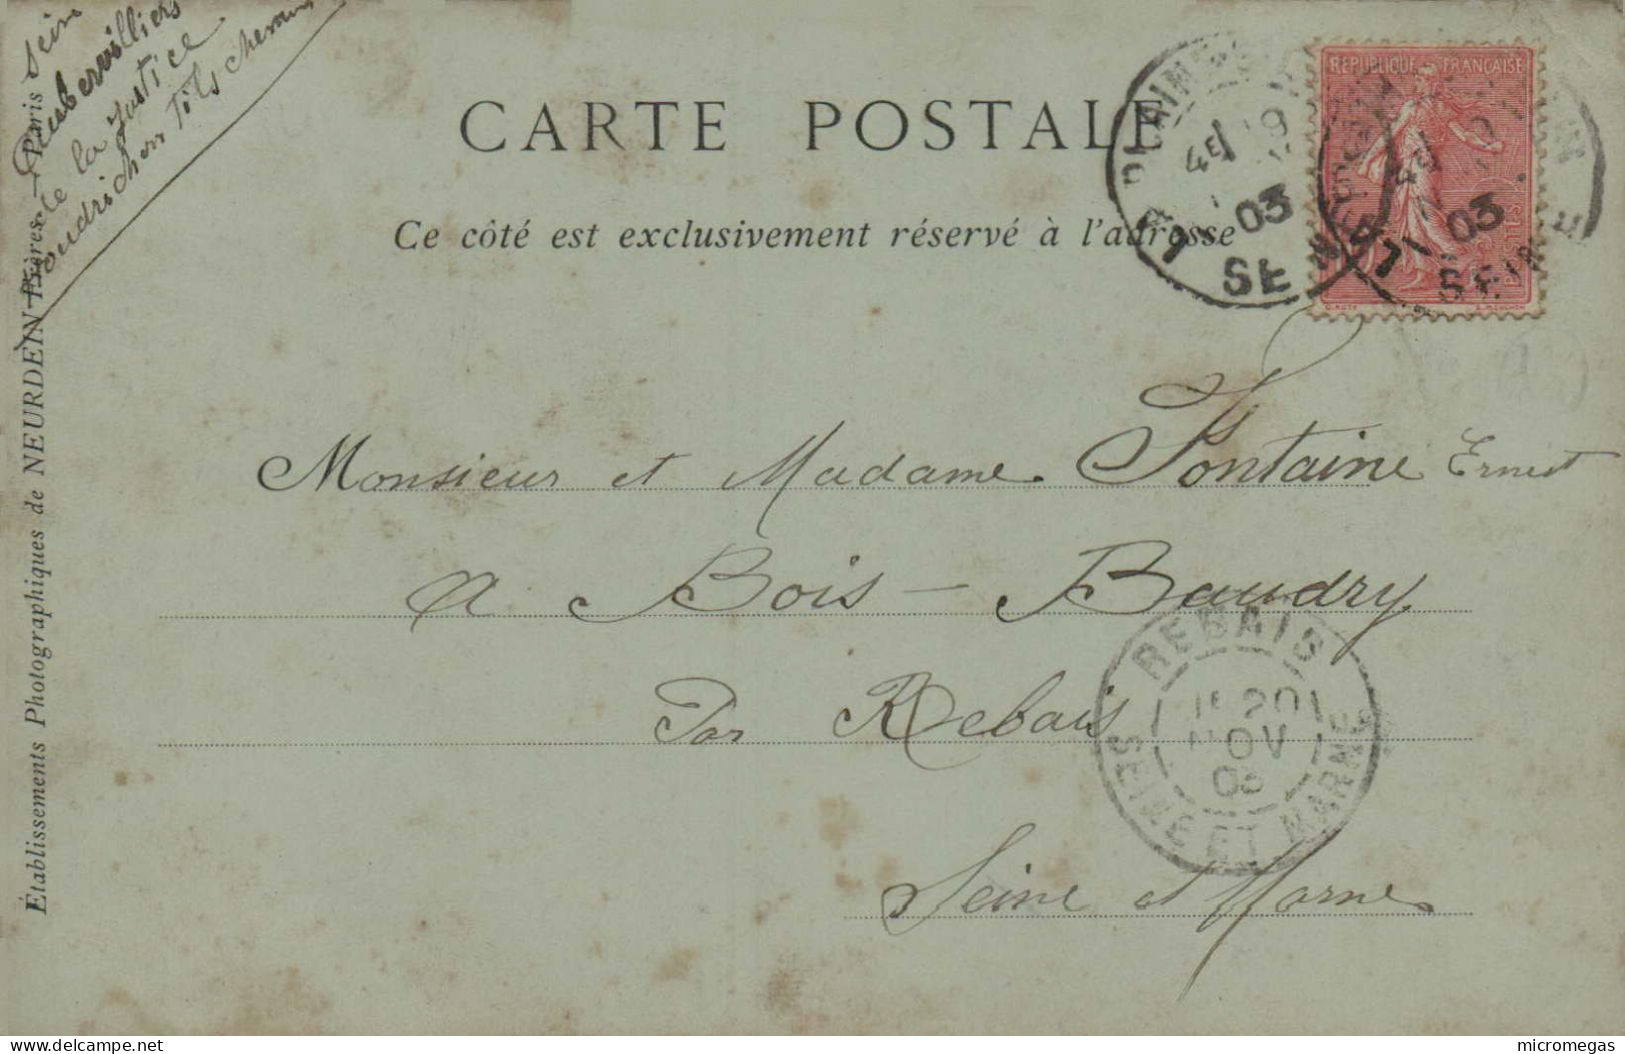 CARTE POSTALE
Ce côté est exclusivement réservé à l'adresse
REPUBLIQUE FRANÇAISE
03
SEINE
Monsieur et Madame Fontaine Ernest
A Bois-Baudry
Par Rebais
Seine et Marne
REBAIS
20
NOV
03
SEINE ET MARNE
Établissements Photographiques de NEURDEIN Frères. - Paris
Seine
Aubervilliers
de la Justice
Fils
delcampe.net
micromegas